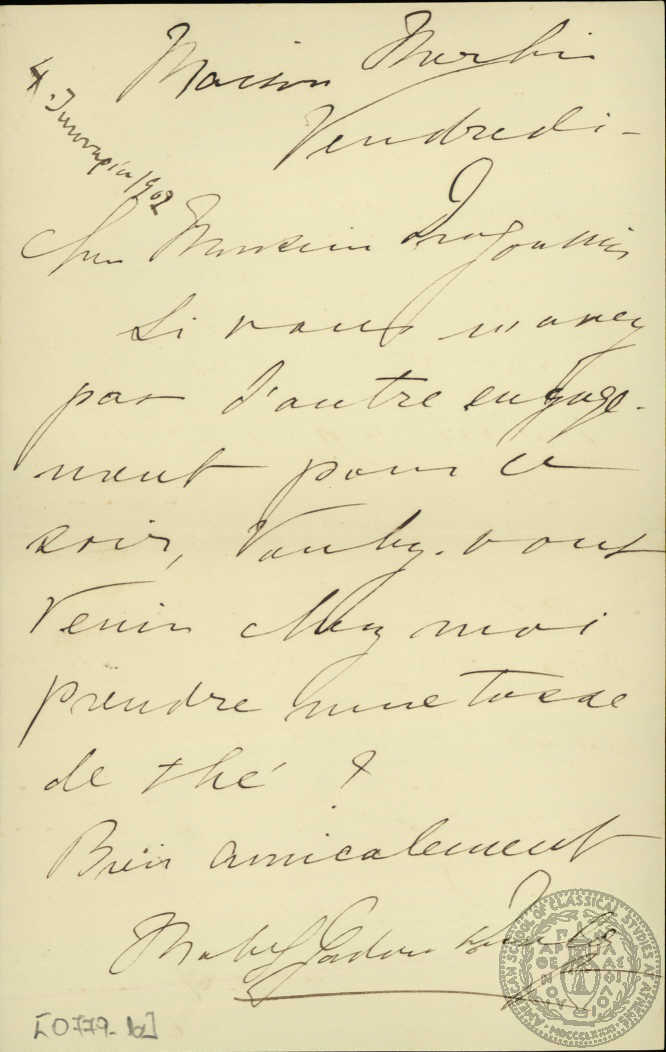 Maison Merlin
Vendredi –
4. Ιανουαρίου 1902
Cher Monsieur Dragoumis
Si vous n'avez
pas d'autre engage-
ment pour ce
soir, voulez-vous
venir chez moi
prendre une tasse
de thé ?
Bien amicalement
Mabel
[0779-b]
AMERICAN SCHOOL OF CLASSICAL STUDIES AT ATHENS
ΠΑΡ
ΘΕ
ΝΟΥ
ΦΙ
MDCCCLXXXI